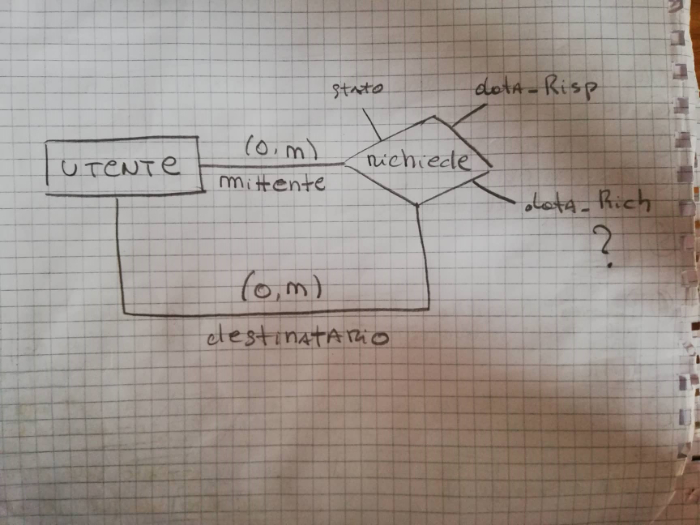 stato
data_Risp
UTENTE
(0,m)
richiede
mittente
data_Rich
?
(0,m)
destinatario